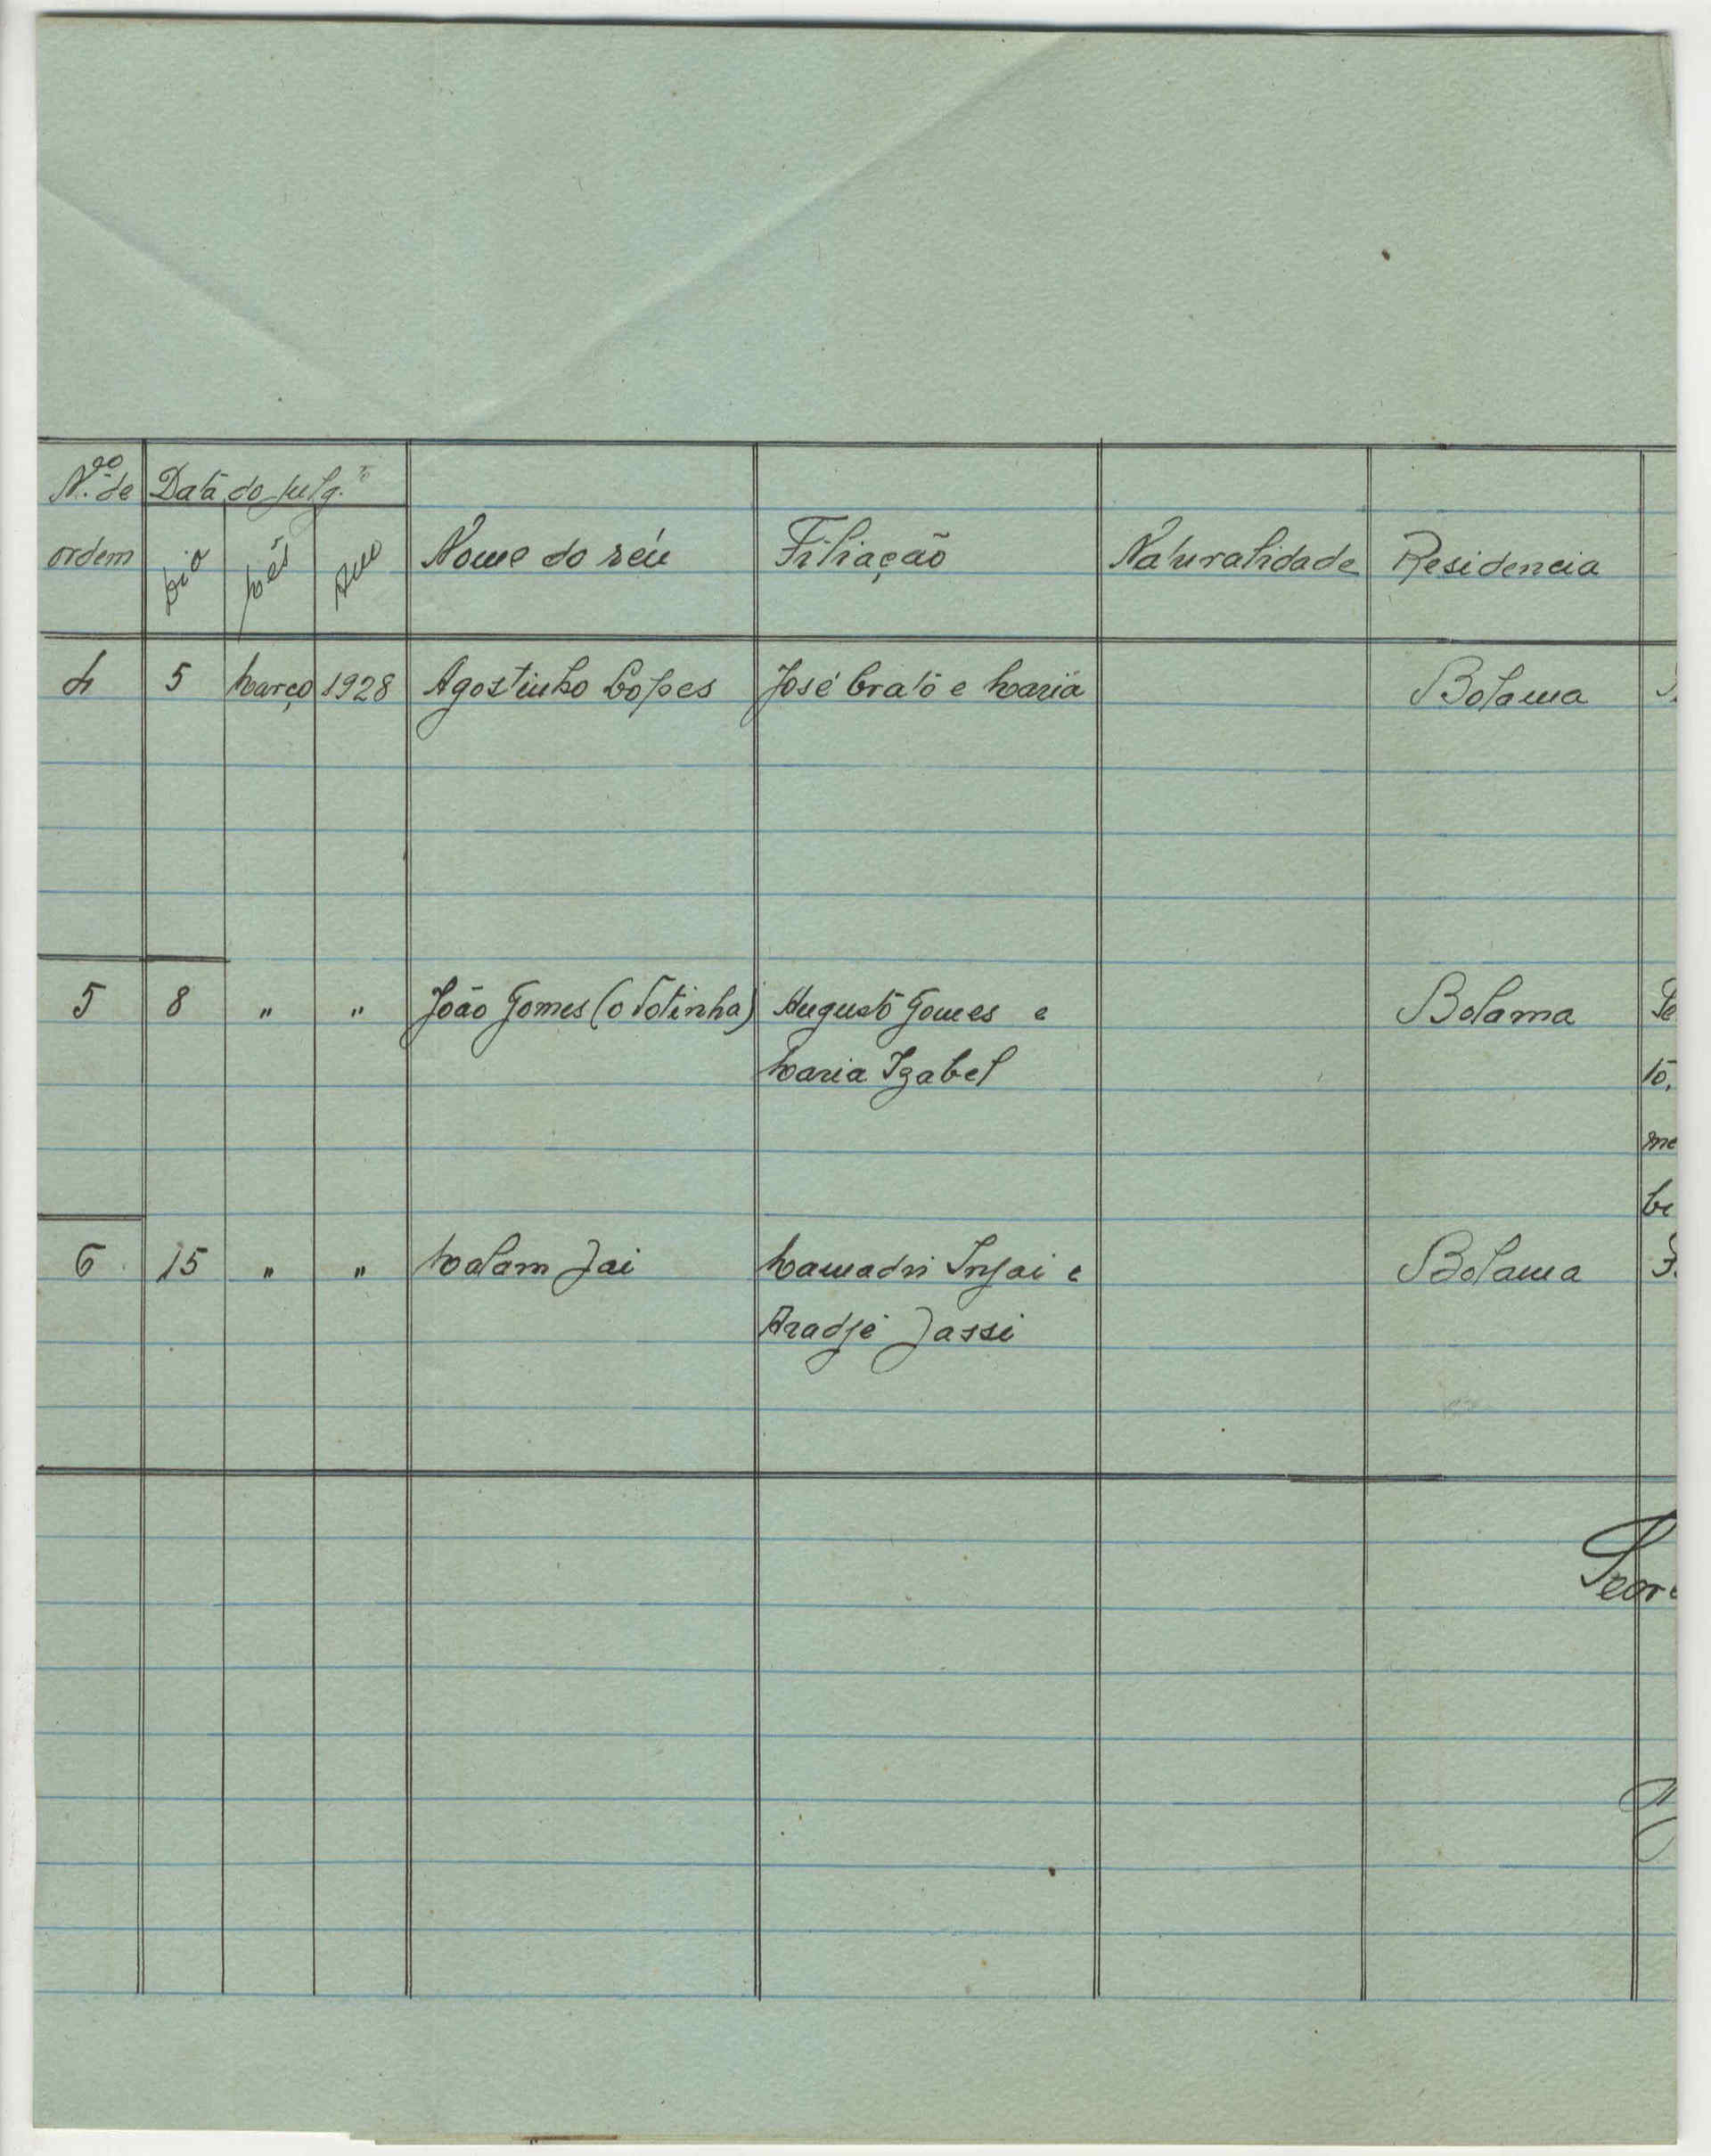 N.º de Data do julg.to
ordem Dia Mês Ano Nome do réu Filiação Naturalidade Residencia
4 5 Março 1928 Agostinho Lopes José Crato e Maria Bolama
5 8 " " João Gomes (o Totinha) Augusto Gomes e Bolama
Maria Izabel
6 15 " " Malam Jai Mamadú Injai e Bolama
Aradjé Jassi